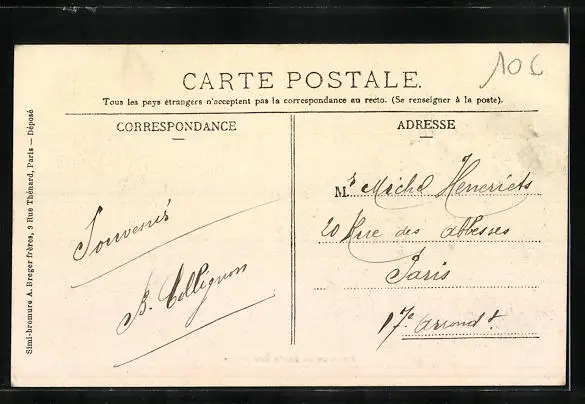 10 €
CARTE POSTALE.
Tous les pays étrangers n'acceptent pas la correspondance au recto. (Se renseigner à la poste).
CORRESPONDANCE
Souvenir
B. Collignon
ADRESSE
Mr Michel Heneriets
20 Rue des abbesses
Paris
17e arrondt
Simi-bromure A. Breger frères, 9 Rue Thénard, Paris — Déposé